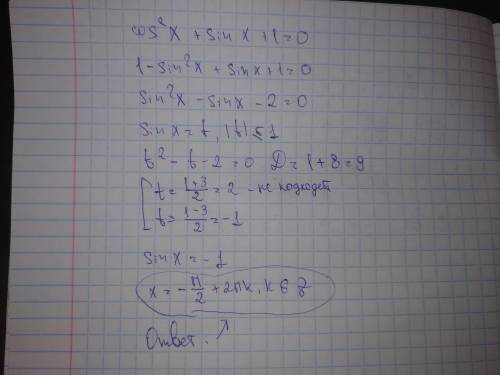 cos²x + sinx + 1 = 0
1 - sin²x + sinx + 1 = 0
sin²x - sinx - 2 = 0
sinx = t, |t| ≤ 1
t² - t - 2 = 0 D = 1 + 8 = 9
[ t = (1+3)/2 = 2 - не подходет
t = (1-3)/2 = -1
sinx = -1
x = -π/2 + 2πk, k ∈ Z
Ответ. ↗